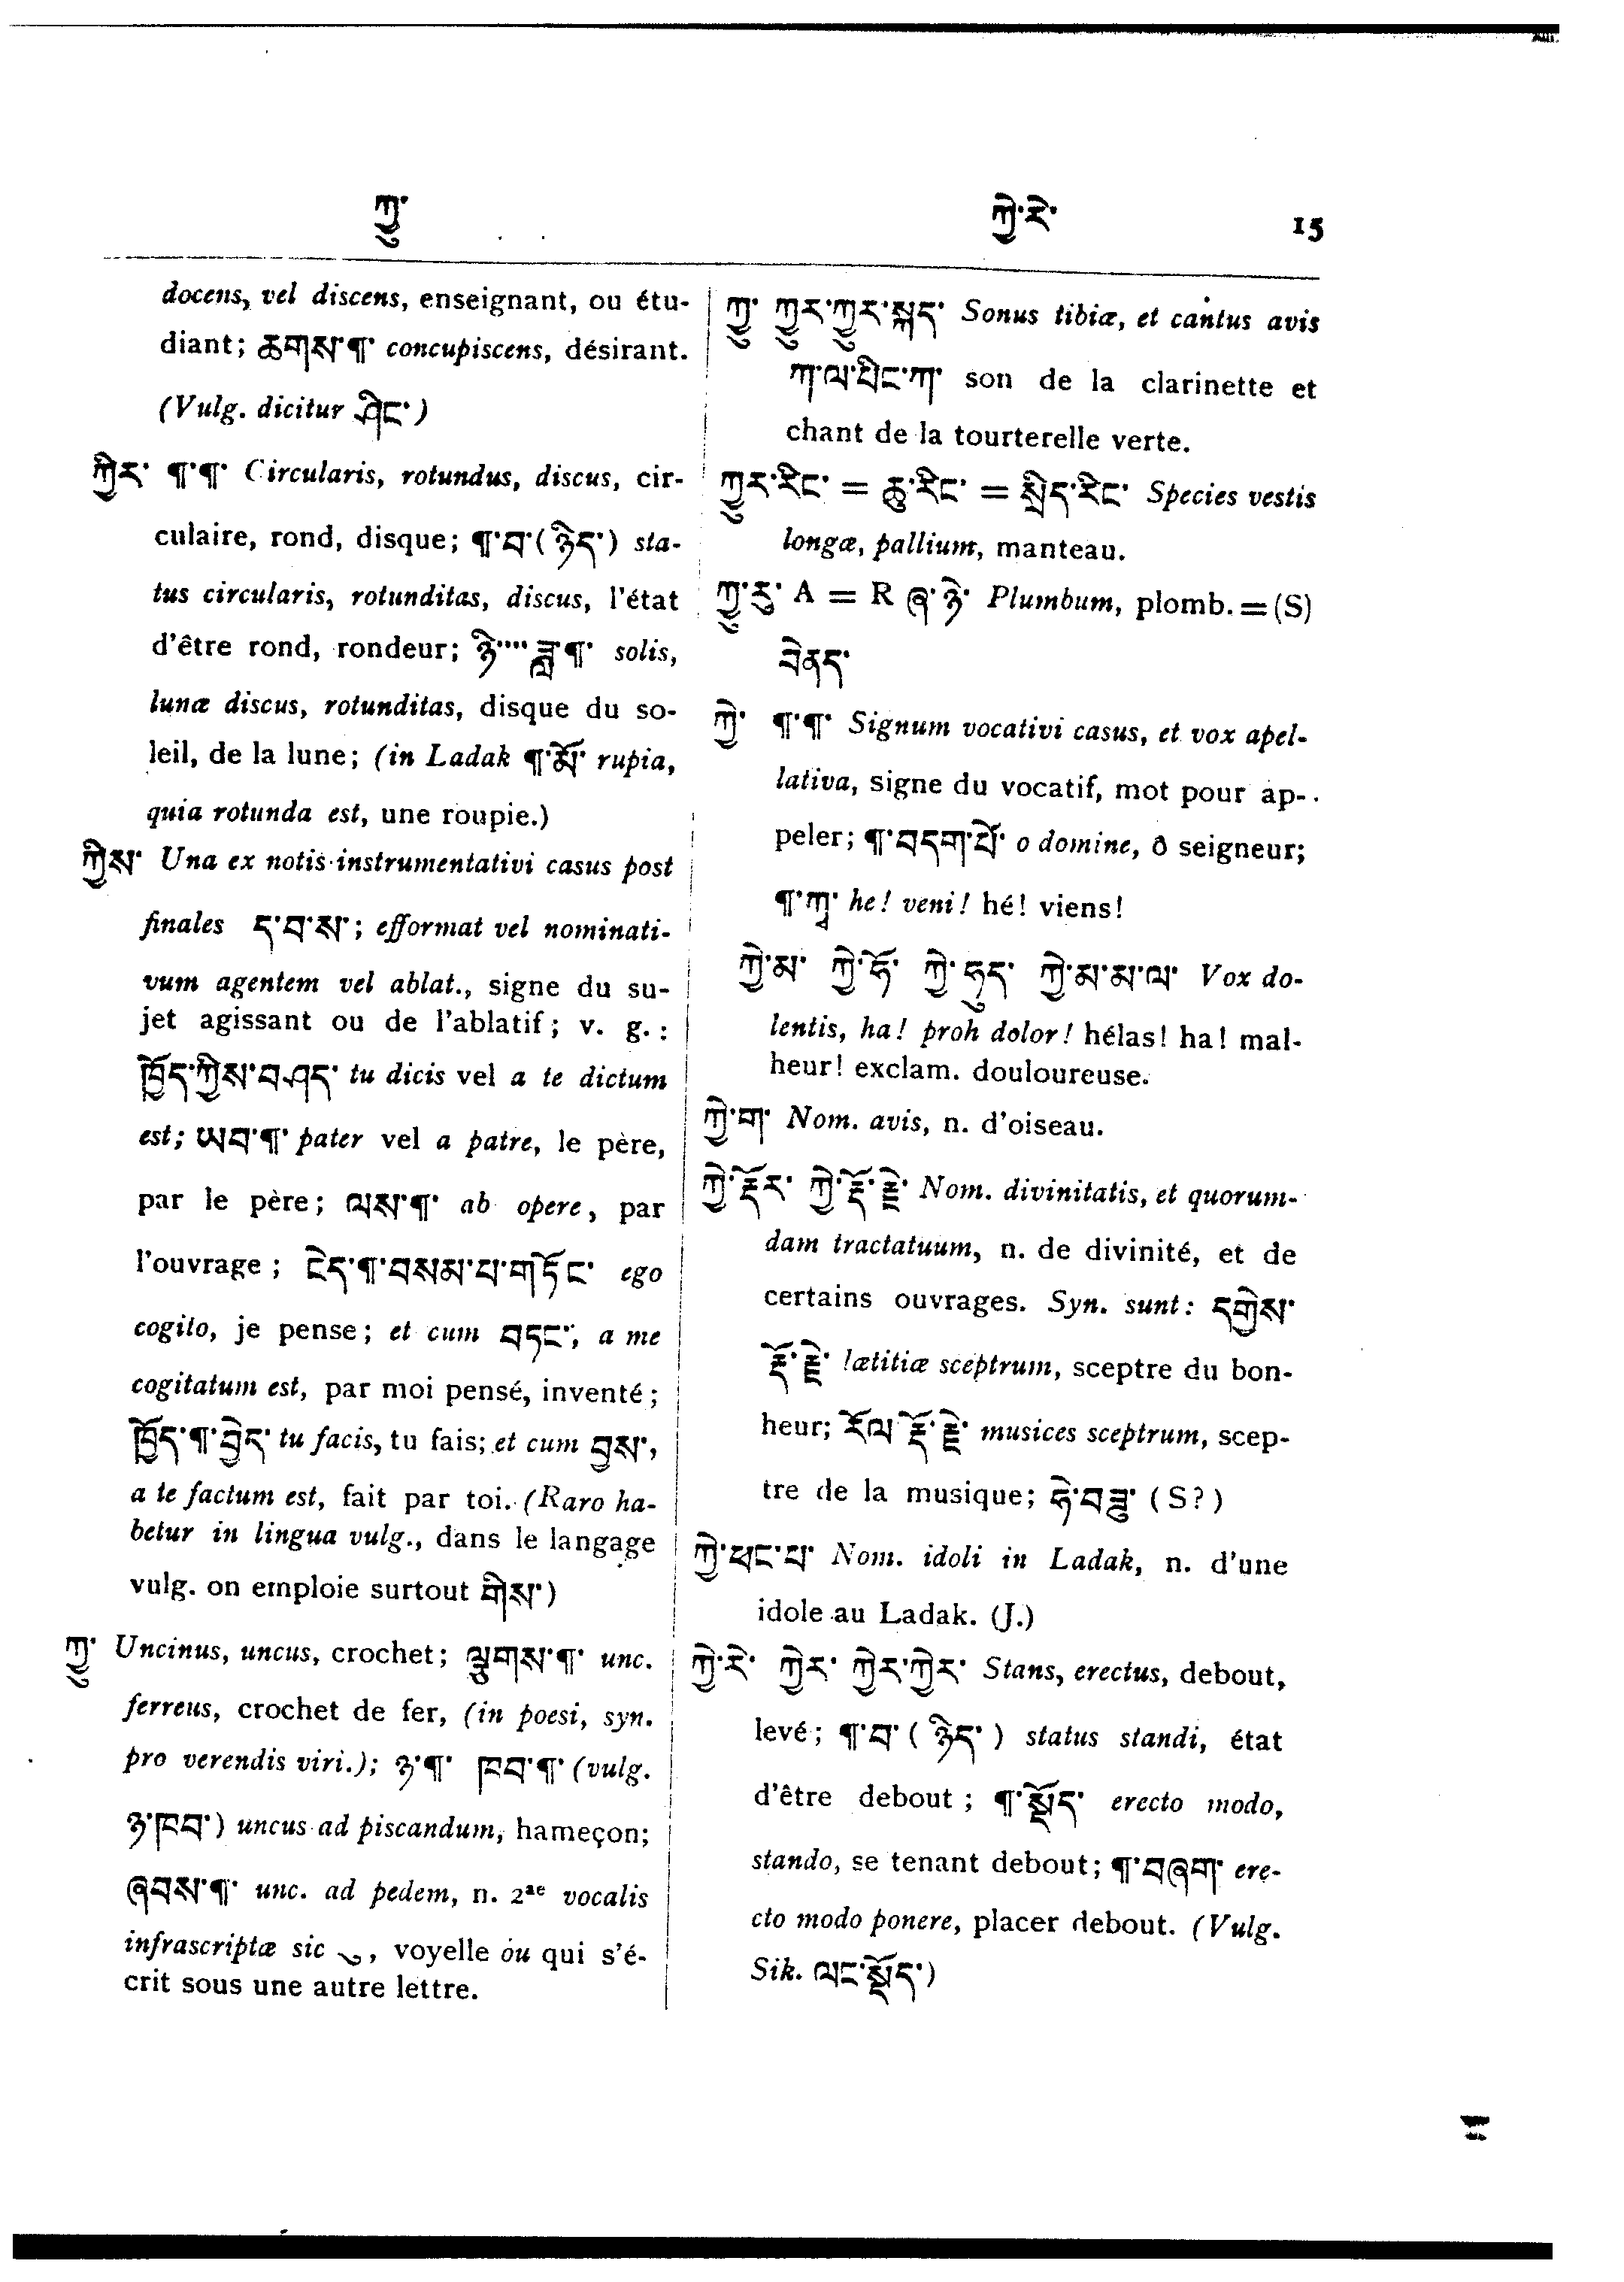 ཀྱུ་
ཀྱེ་རེ་ 15
docens, vel discens, enseignant, ou étu-
diant; ཆགས་¶་ concupiscens, désirant.
(Vulg. dicitur ཤིང་)
ཀྱིར་ ¶་¶་ Circularis, rotundus, discus, cir-
culaire, rond, disque; ¶་བ་(ཉིད་) sta-
tus circularis, rotunditas, discus, l'état
d'être rond, rondeur; ཉི་““ཟླ་¶་ solis,
lunæ discus, rotunditas, disque du so-
leil, de la lune; (in Ladak ¶་མོ་ rupia,
quia rotunda est, une roupie.)
ཀྱིས་ Una ex notis instrumentativi casus post
finales ད་བ་ས་; efformat vel nominati-
vum agentem vel ablat., signe du su-
jet agissant ou de l'ablatif; v. g.:
ཁྱོད་ཀྱིས་བཤད་ tu dicis vel a te dictum
est; ཡབ་¶་ pater vel a patre, le père,
par le père; ལས་¶་ ab opere, par
l'ouvrage; ངེད་¶་བསམ་པ་གཏོང་ ego
cogito, je pense; et cum བཏང་, a me
cogitatum est, par moi pensé, inventé;
ཁྱོད་¶་བྱེད་ tu facis, tu fais; et cum བྱས་,
a te factum est, fait par toi. (Raro ha-
betur in lingua vulg., dans le langage
vulg. on emploie surtout གིས་)
ཀྱུ་ Uncinus, uncus, crochet; ལྕུགས་¶་ unc.
ferreus, crochet de fer, (in poesi, syn.
pro verendis viri.); ཉ་¶་ ཁབ་¶་ (vulg.
ཉ་ཁབ་) uncus ad piscandum, hameçon;
ཞབས་¶་ unc. ad pedem, n. 2ae vocalis
infrascriptæ sic ུ, voyelle ou qui s'é-
crit sous une autre lettre.
ཀྱུ་ ཀྱུར་ཀྱུར་སྐད་ Sonus tibiæ, et cantus avis
ཀ་ལ་པིང་ཀ་ son de la clarinette et
chant de la tourterelle verte.
ཀྱུར་རིང་ = ཆུ་རིང་ = སྲིད་རིང་ Species vestis
longæ, pallium, manteau.
ཀྱུ་རུ་ A = R ཞ་ཉེ་ Plumbum, plomb. = (S)
བེནད་
ཀྱེ་ ¶་¶་ Signum vocativi casus, et vox apel-
lativa, signe du vocatif, mot pour ap-
peler; ¶་བདག་པོ་ o domine, ô seigneur;
¶་ཀྭ་ he! veni! hé! viens!
ཀྱེ་མ་ ཀྱེ་ཧོ་ ཀྱེ་ཧུད་ ཀྱེ་མ་མ་ལ་ Vox do-
lentis, ha! proh dolor! hélas! ha! mal-
heur! exclam. douloureuse.
ཀྱེ་ག་ Nom. avis, n. d'oiseau.
ཀྱེ་རྡོར་ ཀྱེ་རྡོ་རྗེ་ Nom. divinitatis, et quorum-
dam tractatuum, n. de divinité, et de
certains ouvrages. Syn. sunt: དགྱེས་
རྡོ་རྗེ་ lætitiæ sceptrum, sceptre du bon-
heur; རོལ་རྡོ་རྗེ་ musices sceptrum, scep-
tre de la musique; ཧེ་བཛྲ་ (S?)
ཀྱེ་ཕང་པ་ Nom. idoli in Ladak, n. d'une
idole au Ladak. (J.)
ཀྱེ་རེ་ ཀྱེར་ ཀྱེར་ཀྱེར་ Stans, erectus, debout,
levé; ¶་བ་ (ཉིད་) status standi, état
d'être debout; ¶་སྡོད་ erecto modo,
stando, se tenant debout; ¶་བཞག་ ere-
cto modo ponere, placer debout. (Vulg.
Sik. ལང་སྡོད་)